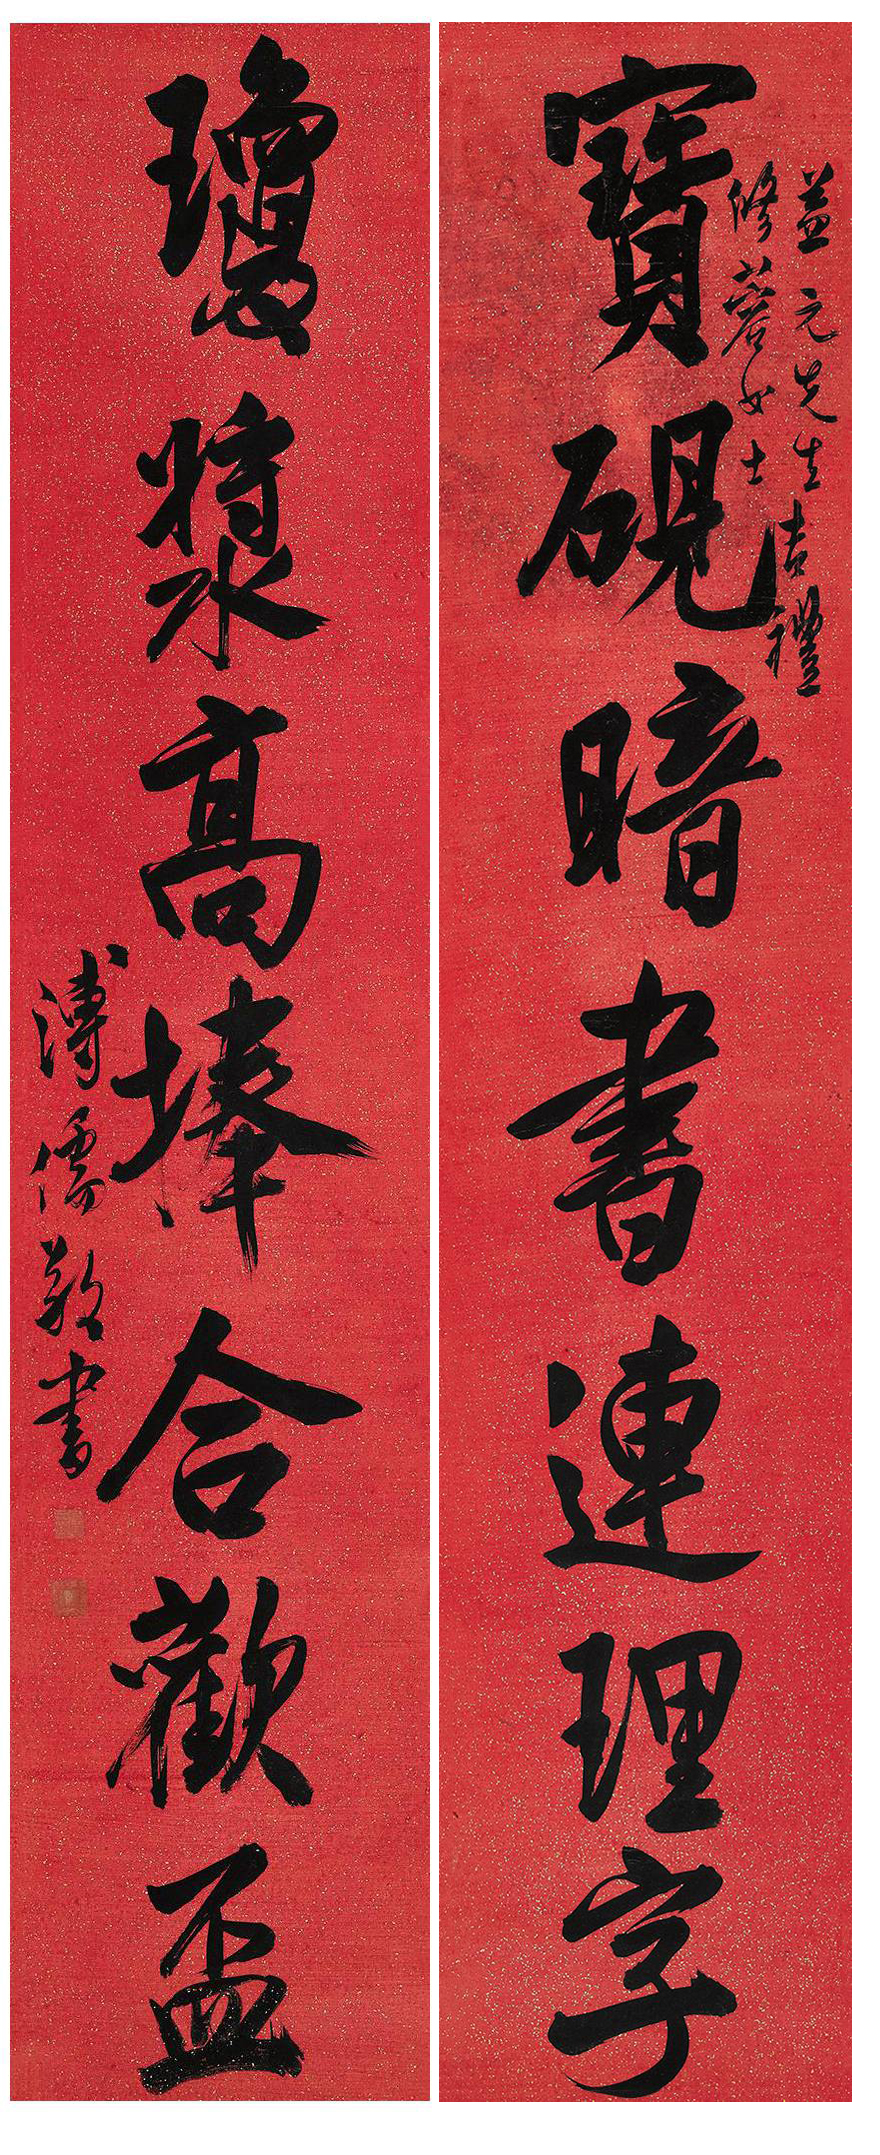 寶硯暗書連理字
益元先生
修蓉女士吉禮
瓊漿高捧合歡盃
溥儒敬書